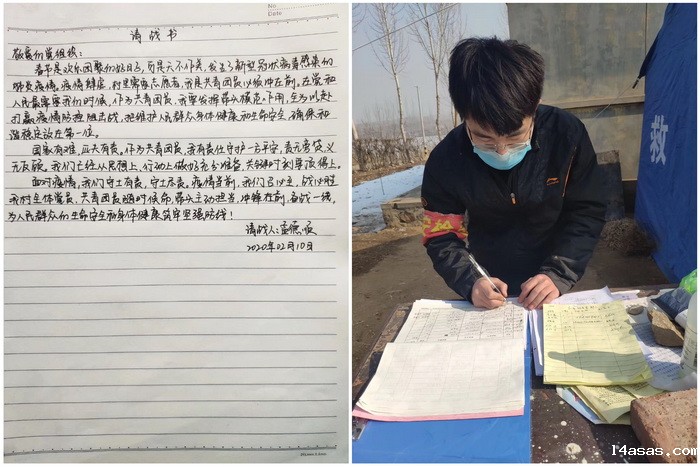 No
Date
请战书
敬爱的党组织:
春节是欢乐团聚的好日子,可是天不作美,发生了新型冠状病毒感染的
肺炎疫情。疫情肆虐,村里需要志愿者,我是共青团员,必须冲在前。在党和
人民最需要我们的时候,作为共青团员,我要发挥带头模范作用,全力以赴
打赢疫情防控阻击战,把维护人民群众身体健康和生命安全,确保和
谐稳定放在第一位。
国家有难,匹夫有责。作为共青团员,我有责任守护一方平安,责无旁贷,义
无反顾。我们已经从思想上,行动上做好充分准备,关键时刻豁得上。
面对疫情,我们守土有责,守土尽责。疫情当前,我们召必至,战必胜
我村全体党员,共青团员随时候命,带头主动担当,冲锋在前,奋战一线,
为人民群众的生命安全和身体健康筑牢坚强防线!
请战人:孟德
2020年02月10日
救
14asas.com